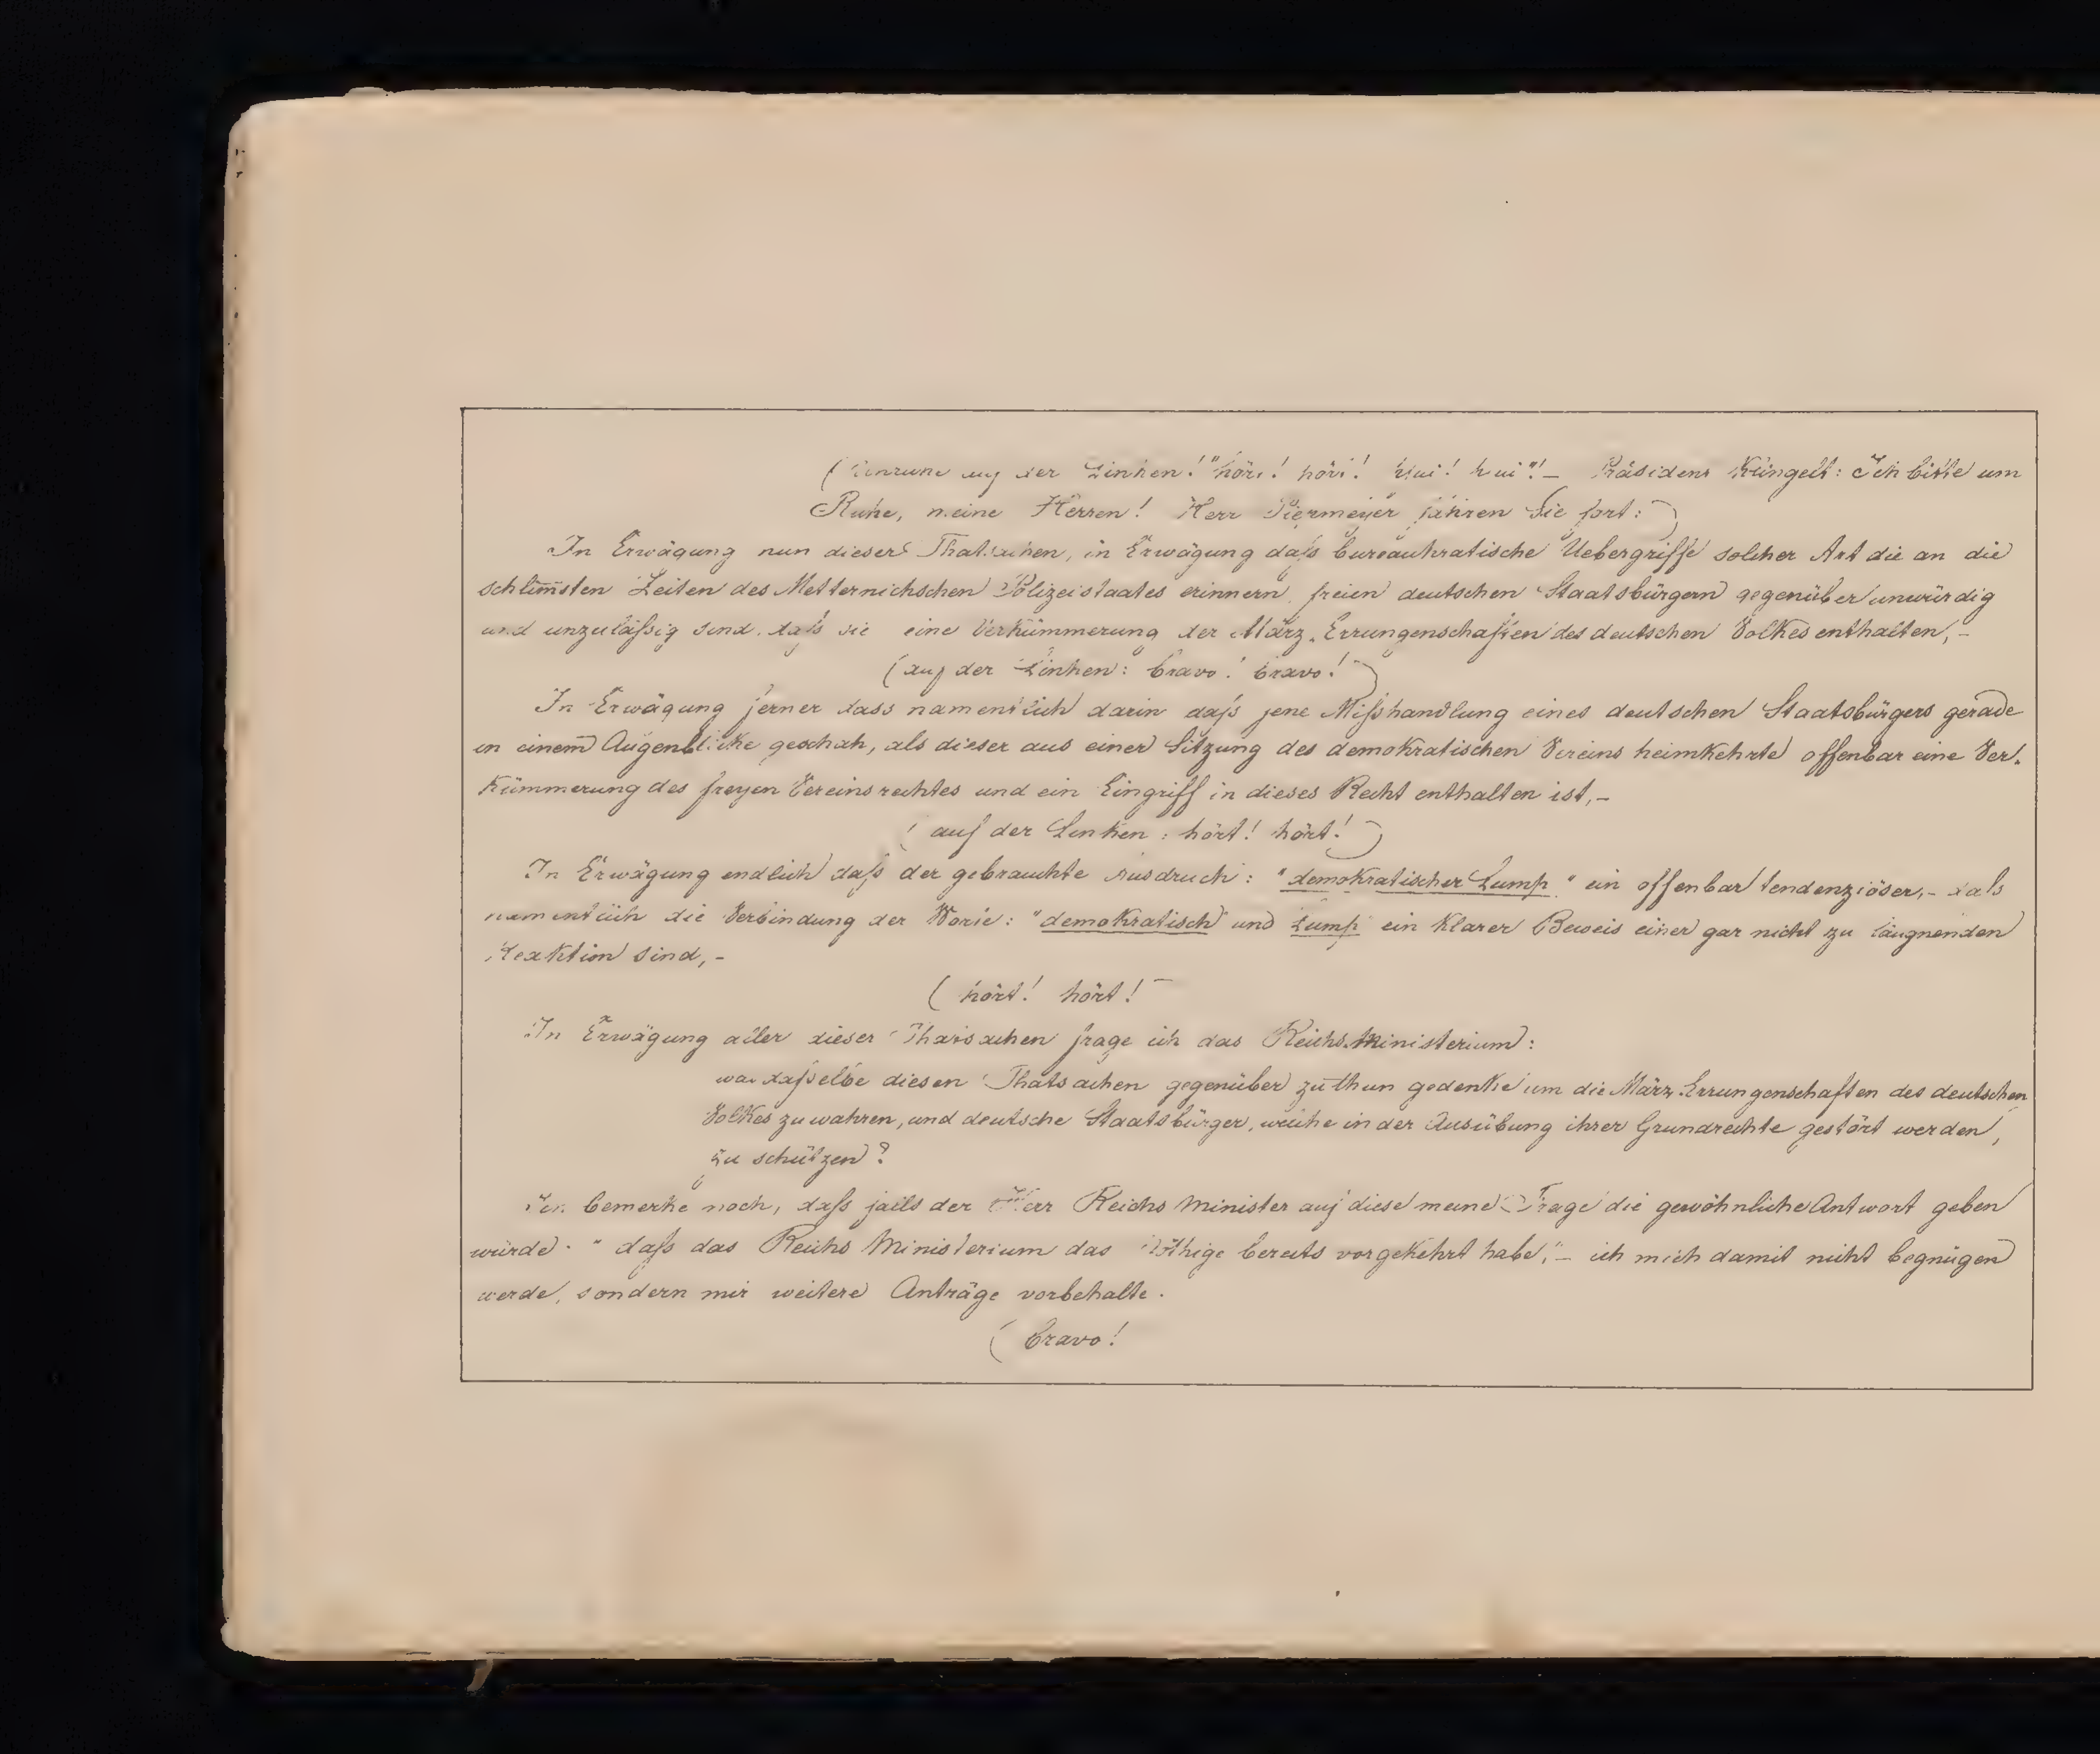 (Unruhe auf der Linken! "hört! hört! hui! hui"!– Präsident Küngelt: Ich bitte um
Ruhe, meine Herren! Herr Piepmeyer fahren Sie fort:)
In Erwägung nun dieser Thatsachen, in Erwägung daß bureaukratische Uebergriffe solcher Art die an die
schlim̅sten Zeiten des Metternichschen Polizeistaates erinnern, freien deutschen Staatsbürgern gegenüber unwürdig
und unzuläßig sind, daß sie eine Verkümmerung der März-Errungenschaften des deutschen Volkes enthalten,–
(auf der Linken: bravo! bravo!)
In Erwägung ferner dass namentlich darin daß jene Mißhandlung eines deutschen Staatsbürgers gerade
in einem Augenblicke geschah, als dieser aus einer Sitzung des demokratischen Vereins heimkehrte offenbar eine Ver-
kümmerung des freyen Vereinsrechtes und ein Eingriff in dieses Recht enthalten ist,–
(auf der Linken: hört! hört!)
In Erwägung endlich daß der gebrauchte Ausdruck: "demokratischer Lump" ein offenbar tendenziöser,– daß
namentlich die Verbindung der Worte: "demokratisch" und Lump ein klarer Beweis einer gar nicht zu läugnenden
Reaktion sind,–
(hört! hört!
In Erwägung aller dieser Thatsachen frage ich das Reichs-Ministerium:
was daßelbe diesen Thatsachen gegenüber zu thun gedenke um die März-Errungenschaften des deutschen
Volkes zu wahren, und deutsche Staatsbürger, welche in der Ausübung ihrer Grundrechte gestört werden,
zu schützen?
Ich bemerke noch, daß falls der Herr Reichs Minister auf diese meine Frage die gewöhnliche Antwort geben
würde: "daß das Reichs Ministerium das Nöthige bereits vorgekehrt habe,"– ich mich damit nicht begnügen
werde, sondern mir weitere Anträge vorbehalte.
(bravo!